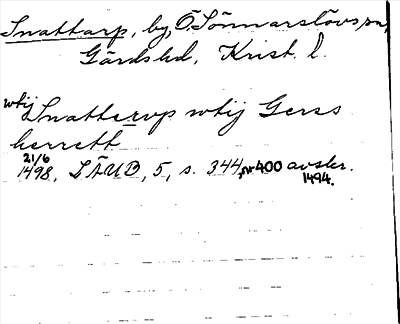 Snattarp, by, Ö. Sönnarslövs sn,
Gärds hd, Krist. l.
wtij Snatterup wtij Gerss
herrett
21/6 1498. LÄUB, 5, s. 344, nr 400 avskr. 1494.